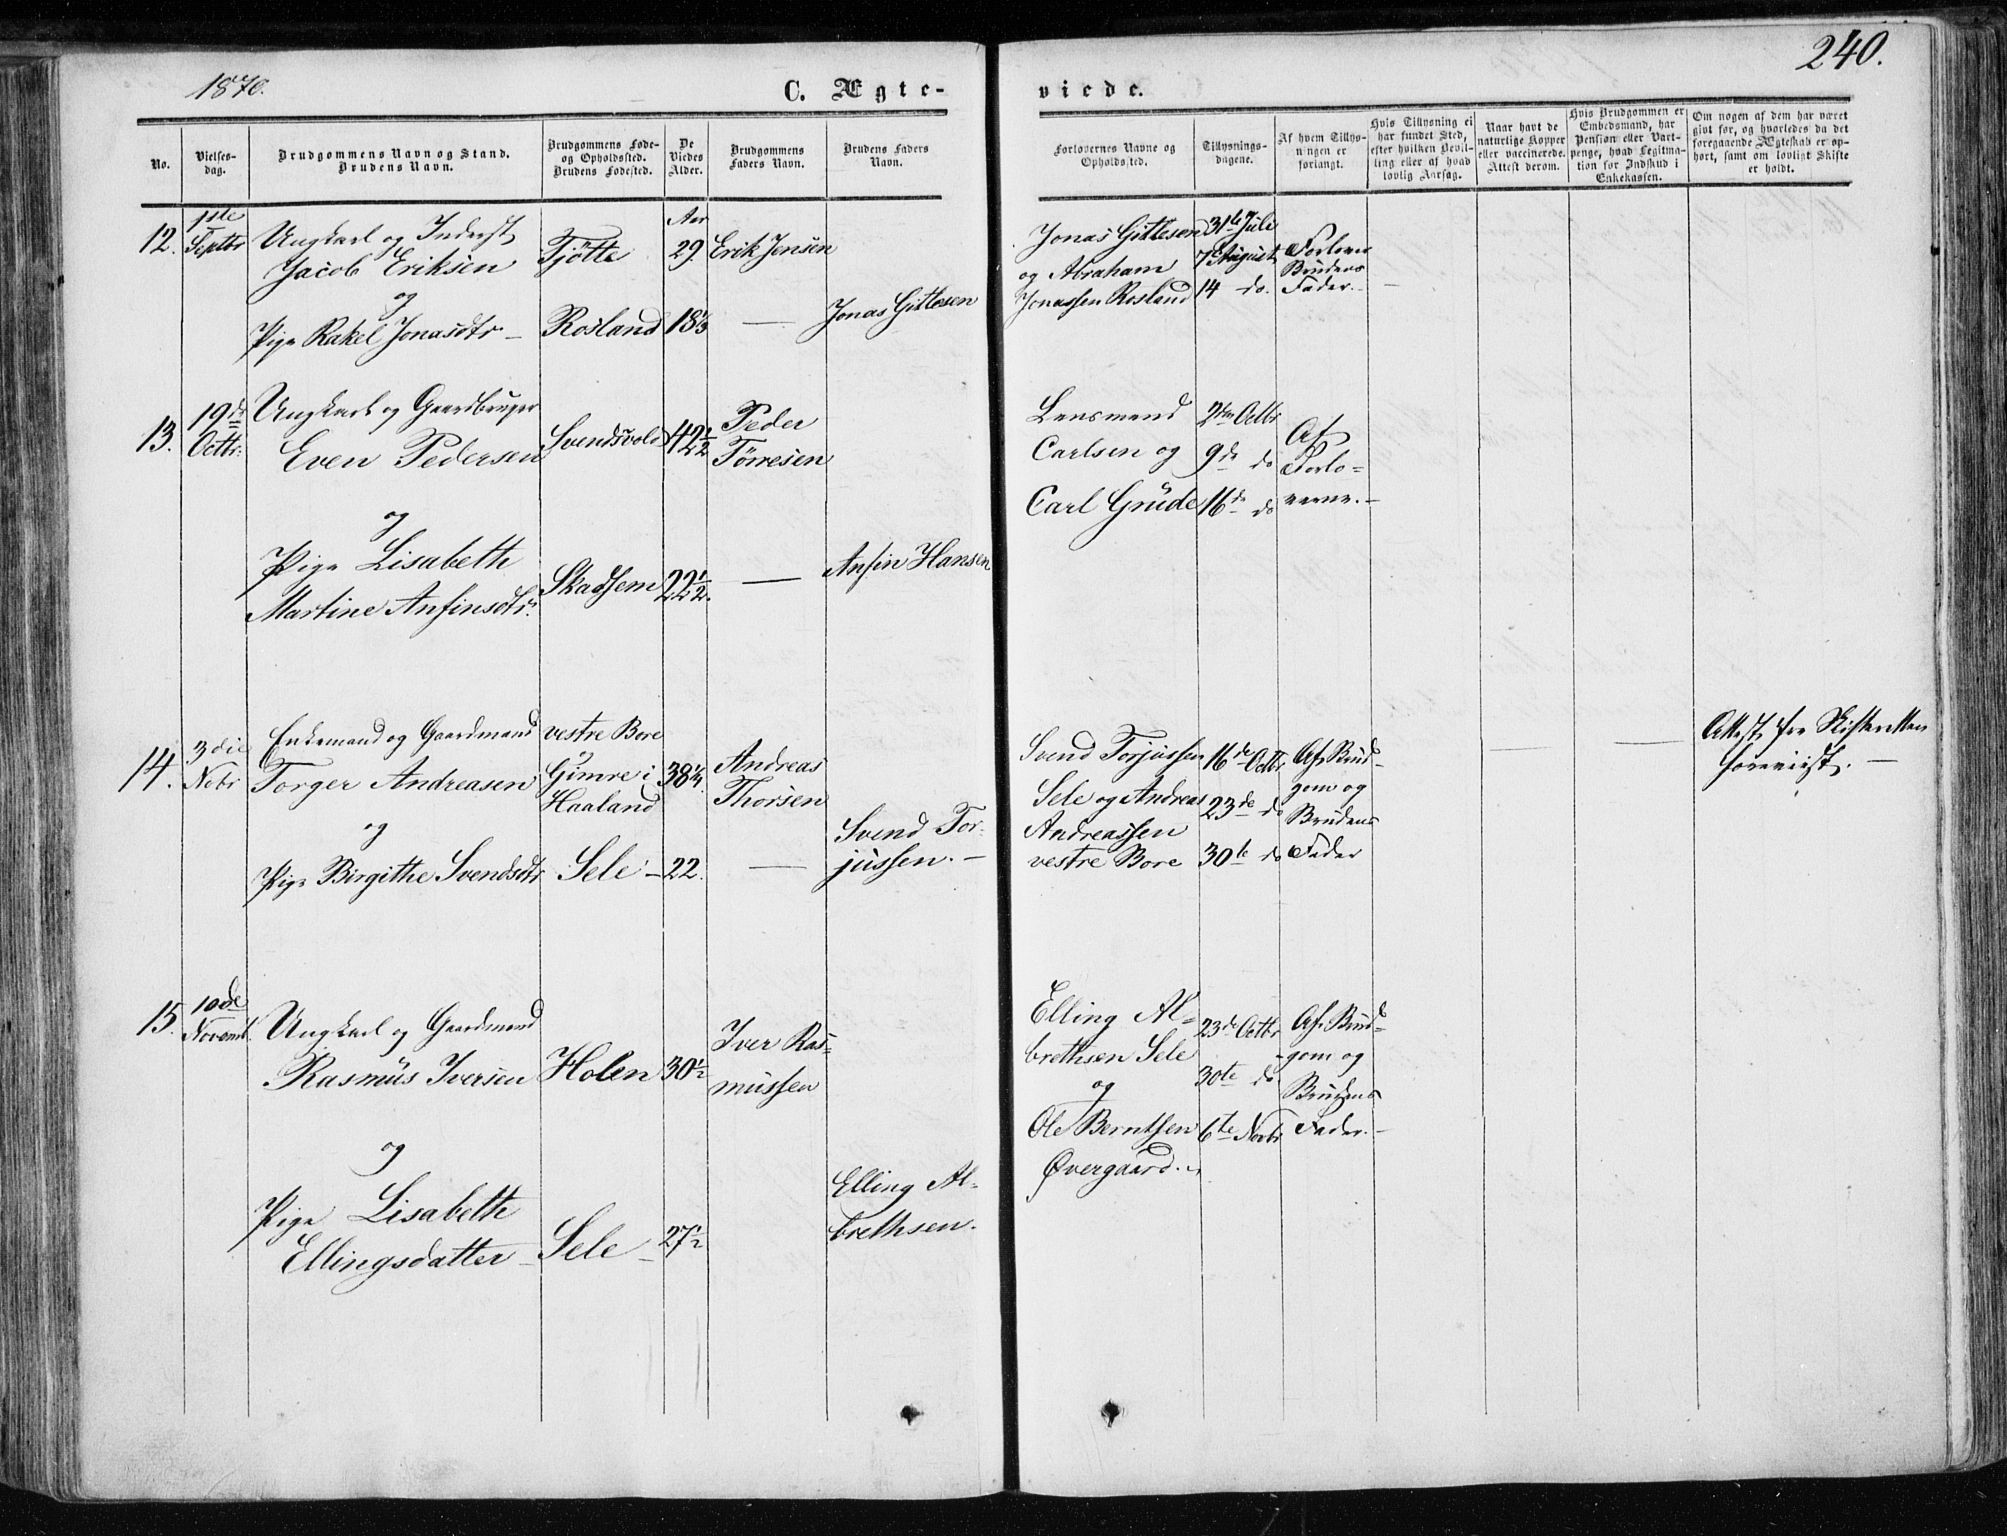 1870.
C. Ægte-
viede.
240.
No.
Vielses-
dag.
Brudgommens Navn og Stand.
Brudens Navn.
Brudgommens Føde-
og Opholdssted.
Brudens Fødested.
De
Viedes
Alder.
Brudgommens
Faders Navn.
Brudens Faders
Navn.
Forlovernes Navne og
Opholdssted.
Tillysnings-
dagene.
Af hvem Tillys-
ningen er
forlangt.
Hvis Tillysning ei
har fundet Sted,
efter hvilken Bevil-
ling eller af hvad
lovlig Aarsag.
Naar havt de
naturlige Kopper
eller vaccinerede.
Attest derom.
Hvis Brudgommen er
Embedsmand, har
Pension eller Vart-
penge, hvad Legitma-
tion for Indskud i
Enkekassen.
Om nogen af dem har været
givt før, og hvorledes da det
foregaaende Ægteskab er op-
hørt, samt om lovligt Skifte
er holdt.
12.
1ste
Septbr
Ungkarl og Inderst
Jacob Eriksen
og
Pige Rakel Jonasdtr –
Tjötte
Rosland
Aar
29.
18 1/3
Erik Jensen
—
Jonas Gitlesen
Jonas Gitlesen
og Abraham
Jonassen Rosland
31te Juli
7de August
14 do.
Forlover
Brudens
Fader. –
13.
19de
Octbr.
Ungkarl og Gaardbruger
Even Pedersen
og
Pige Lisabeth
Martine Anfinsdtr.
Svendsvold
Skadsem
42 1/2
22 1/2.
Peder
Tørresen
—
Anfin Hansen
Lensmand
Carlsen og
Carl Grude
2den Octbr
9de do
16de do
Af
Forlo=
verne. –
14.
3die
Nobr
Enkemand og Gaardmand
Torger Andreasen
og
Pige Birgithe Svendsdtr
vestre Bore
Gimre i
Haaland
Sele –
38 1/4.
22.
Andreas
Thorsen
—
Svend Tor-
jussen. –
Svend Torjussen
Sele og Andreas
Andreassen
vestre Bore
16de Octbr
23de do
30te do
Af Brud-
gom og
Brudens
Fader
—
—
Attest fra Skifteretten
foreviist. —
15.
10de
Novemb.
Ungkarl og Gaardmand
Rasmus Iversen
og
Pige Lisabeth
Ellingsdatter –
Holen
Sele –
30 1/2
27 1/2
Iver Ras=
mussen
Elling Al-
brethsen.
Elling Al=
brethsen Sele
og
Ole Berntsen
Øvergaard. –
23de Octbr
30te do
6te Novbr
Af Brud=
gom og
Brudens
Fader. –